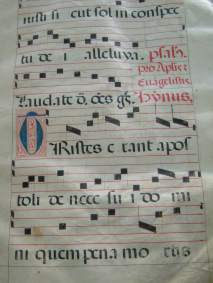 iusti si cut sol in conspe
tu de i alleluya. psalm.
pro Apostolis
Laudate d. oēs gē. Evangelistis
Hymnus.
TRistes e rant apos
toli de nece su i do mi
ni quem pena mo rtis